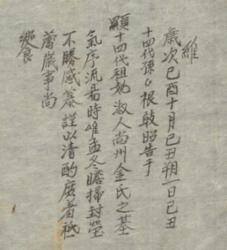 維
歲次己酉十月己丑朔一日己丑
十四代孫 根 敢昭告于
顯十四代祖妣淑人尚州金氏之墓
氣序流易時維孟冬瞻掃封塋
不勝感慕謹以清酌庶羞祗
薦歲事尚
饗